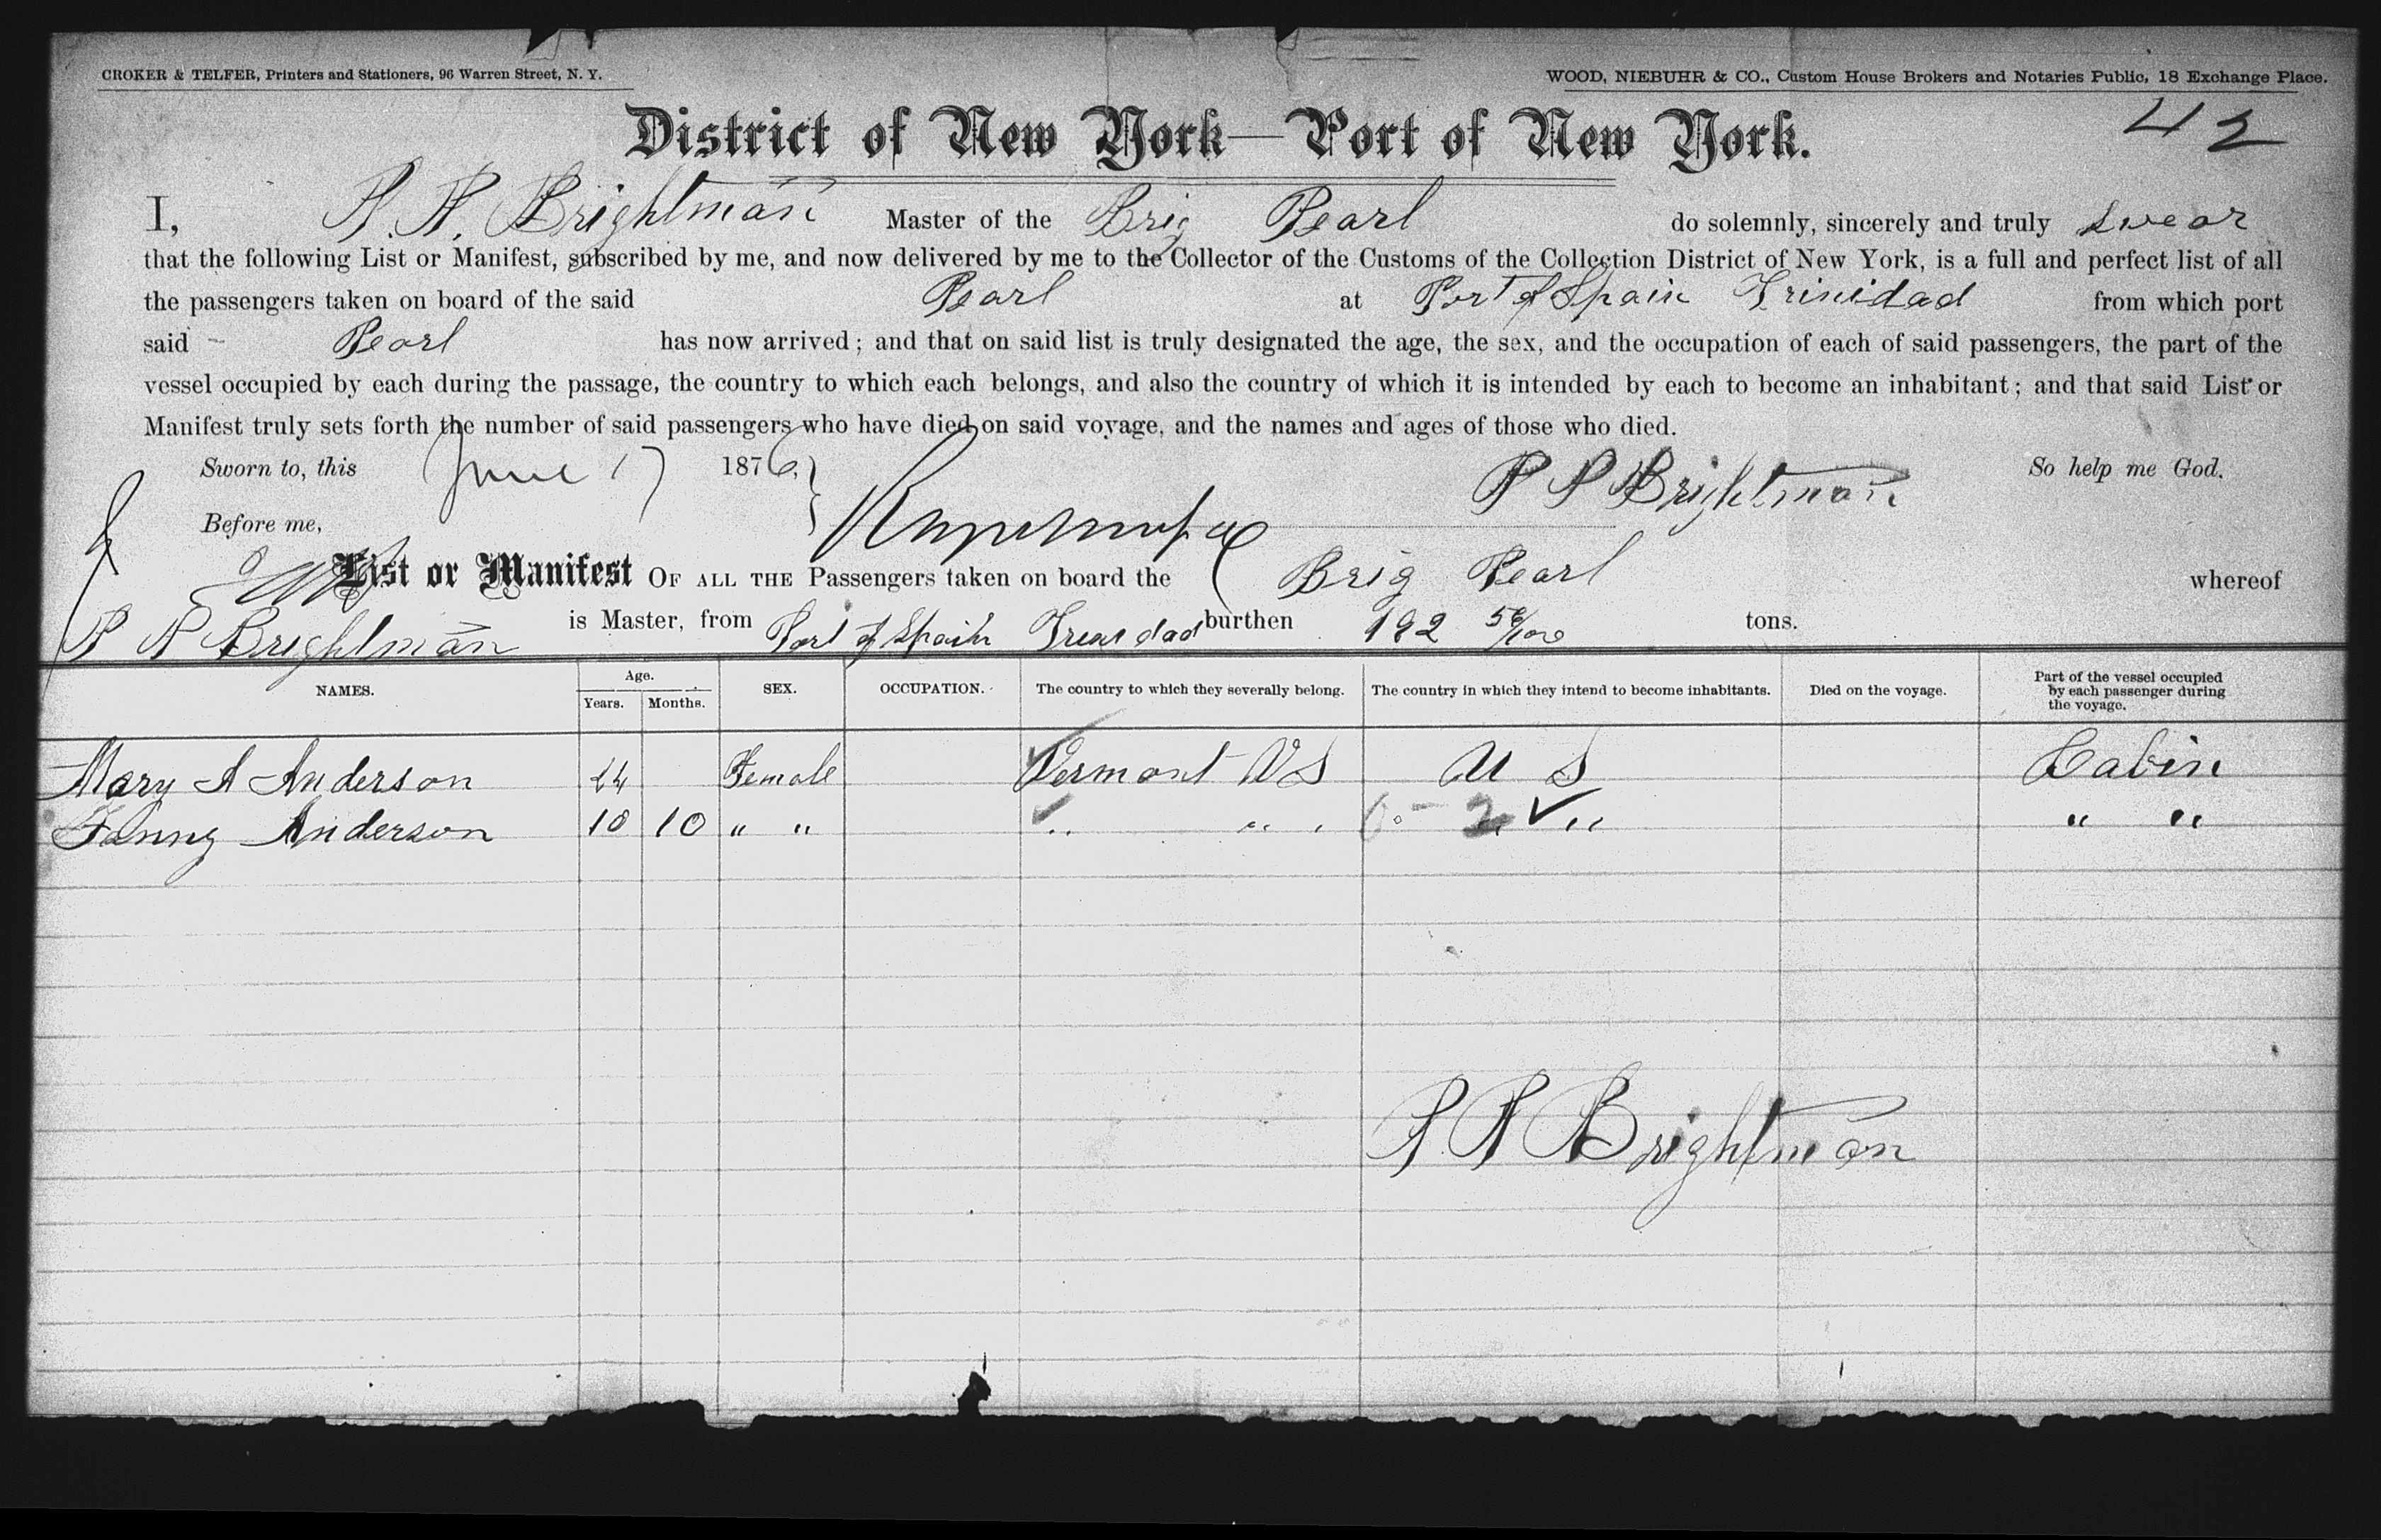 CROKER & TELFER, Printers and Stationers, 96 Warren Street, N. Y.
WOOD, NIEBUHR & CO., Custom House Brokers and Notaries Public, 18 Exchange Place.
42
District of New York—Port of New York.
I, Brightman Master of the Brig Pearl do solemnly, sincerely and truly swear
that the following List or Manifest, subscribed by me, and now delivered by me to the Collector of the Customs of the Collection District of New York, is a full and perfect list of all
the passengers taken on board of the said Pearl at Port of Spain Trinidad from which port
said Pearl has now arrived; and that on said list is truly designated the age, the sex, and the occupation of each of said passengers, the part of the
vessel occupied by each during the passage, the country to which each belongs, and also the country of which it is intended by each to become an inhabitant; and that said List or
Manifest truly sets forth the number of said passengers who have died on said voyage, and the names and ages of those who died.
Sworn to, this June 17 1876, Brightman So help me God.
Before me,
List or Manifest OF ALL THE Passengers taken on board the Brig Pearl whereof
Brightman is Master, from Port of Spain Trinidad burthen 192 56/100 tons.
NAMES. Age. Years. Months. SEX. OCCUPATION. The country to which they severally belong. The country in which they intend to become inhabitants. Died on the voyage. Part of the vessel occupied by each passenger during the voyage.
Mary A Anderson 24 Female Vermont US U S Cabin
Fanny Anderson 10 10 " " " " 2 " " "
Brightman